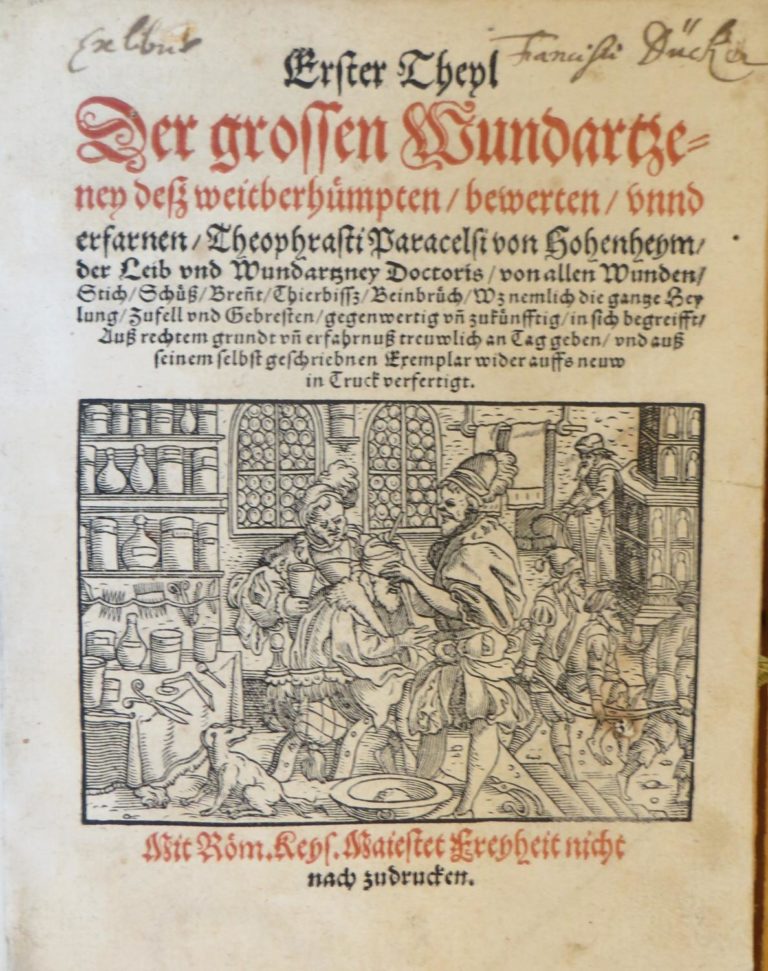 Ex libris Francisci Dücker
Erster Theyl
Der grossen Wundartze-
ney desz weitberhümpten / bewerten / vnnd
erfarnen / Theophrasti Paracelsi von Hohenheym /
der Leib vnd Wundartzney Doctoris / von allen Wunden /
Stich / Schüsz / Breñt / Thierbissz / Beinbrüch / Wz nemlich die gantze Hey
lung / Zufell vnd Gebresten / gegenwertig vñ zukünfftig / in sich begreifft /
Ausz rechtem grundt vñ erfahrnusz treuwlich an Tag geben / vnd ausz
seinem selbst geschriebnen Exemplar wider auffs neuw
in Truck verfertigt.
Mit Röm. Keys. Maiestet Freyheit nicht
nach zudrucken.